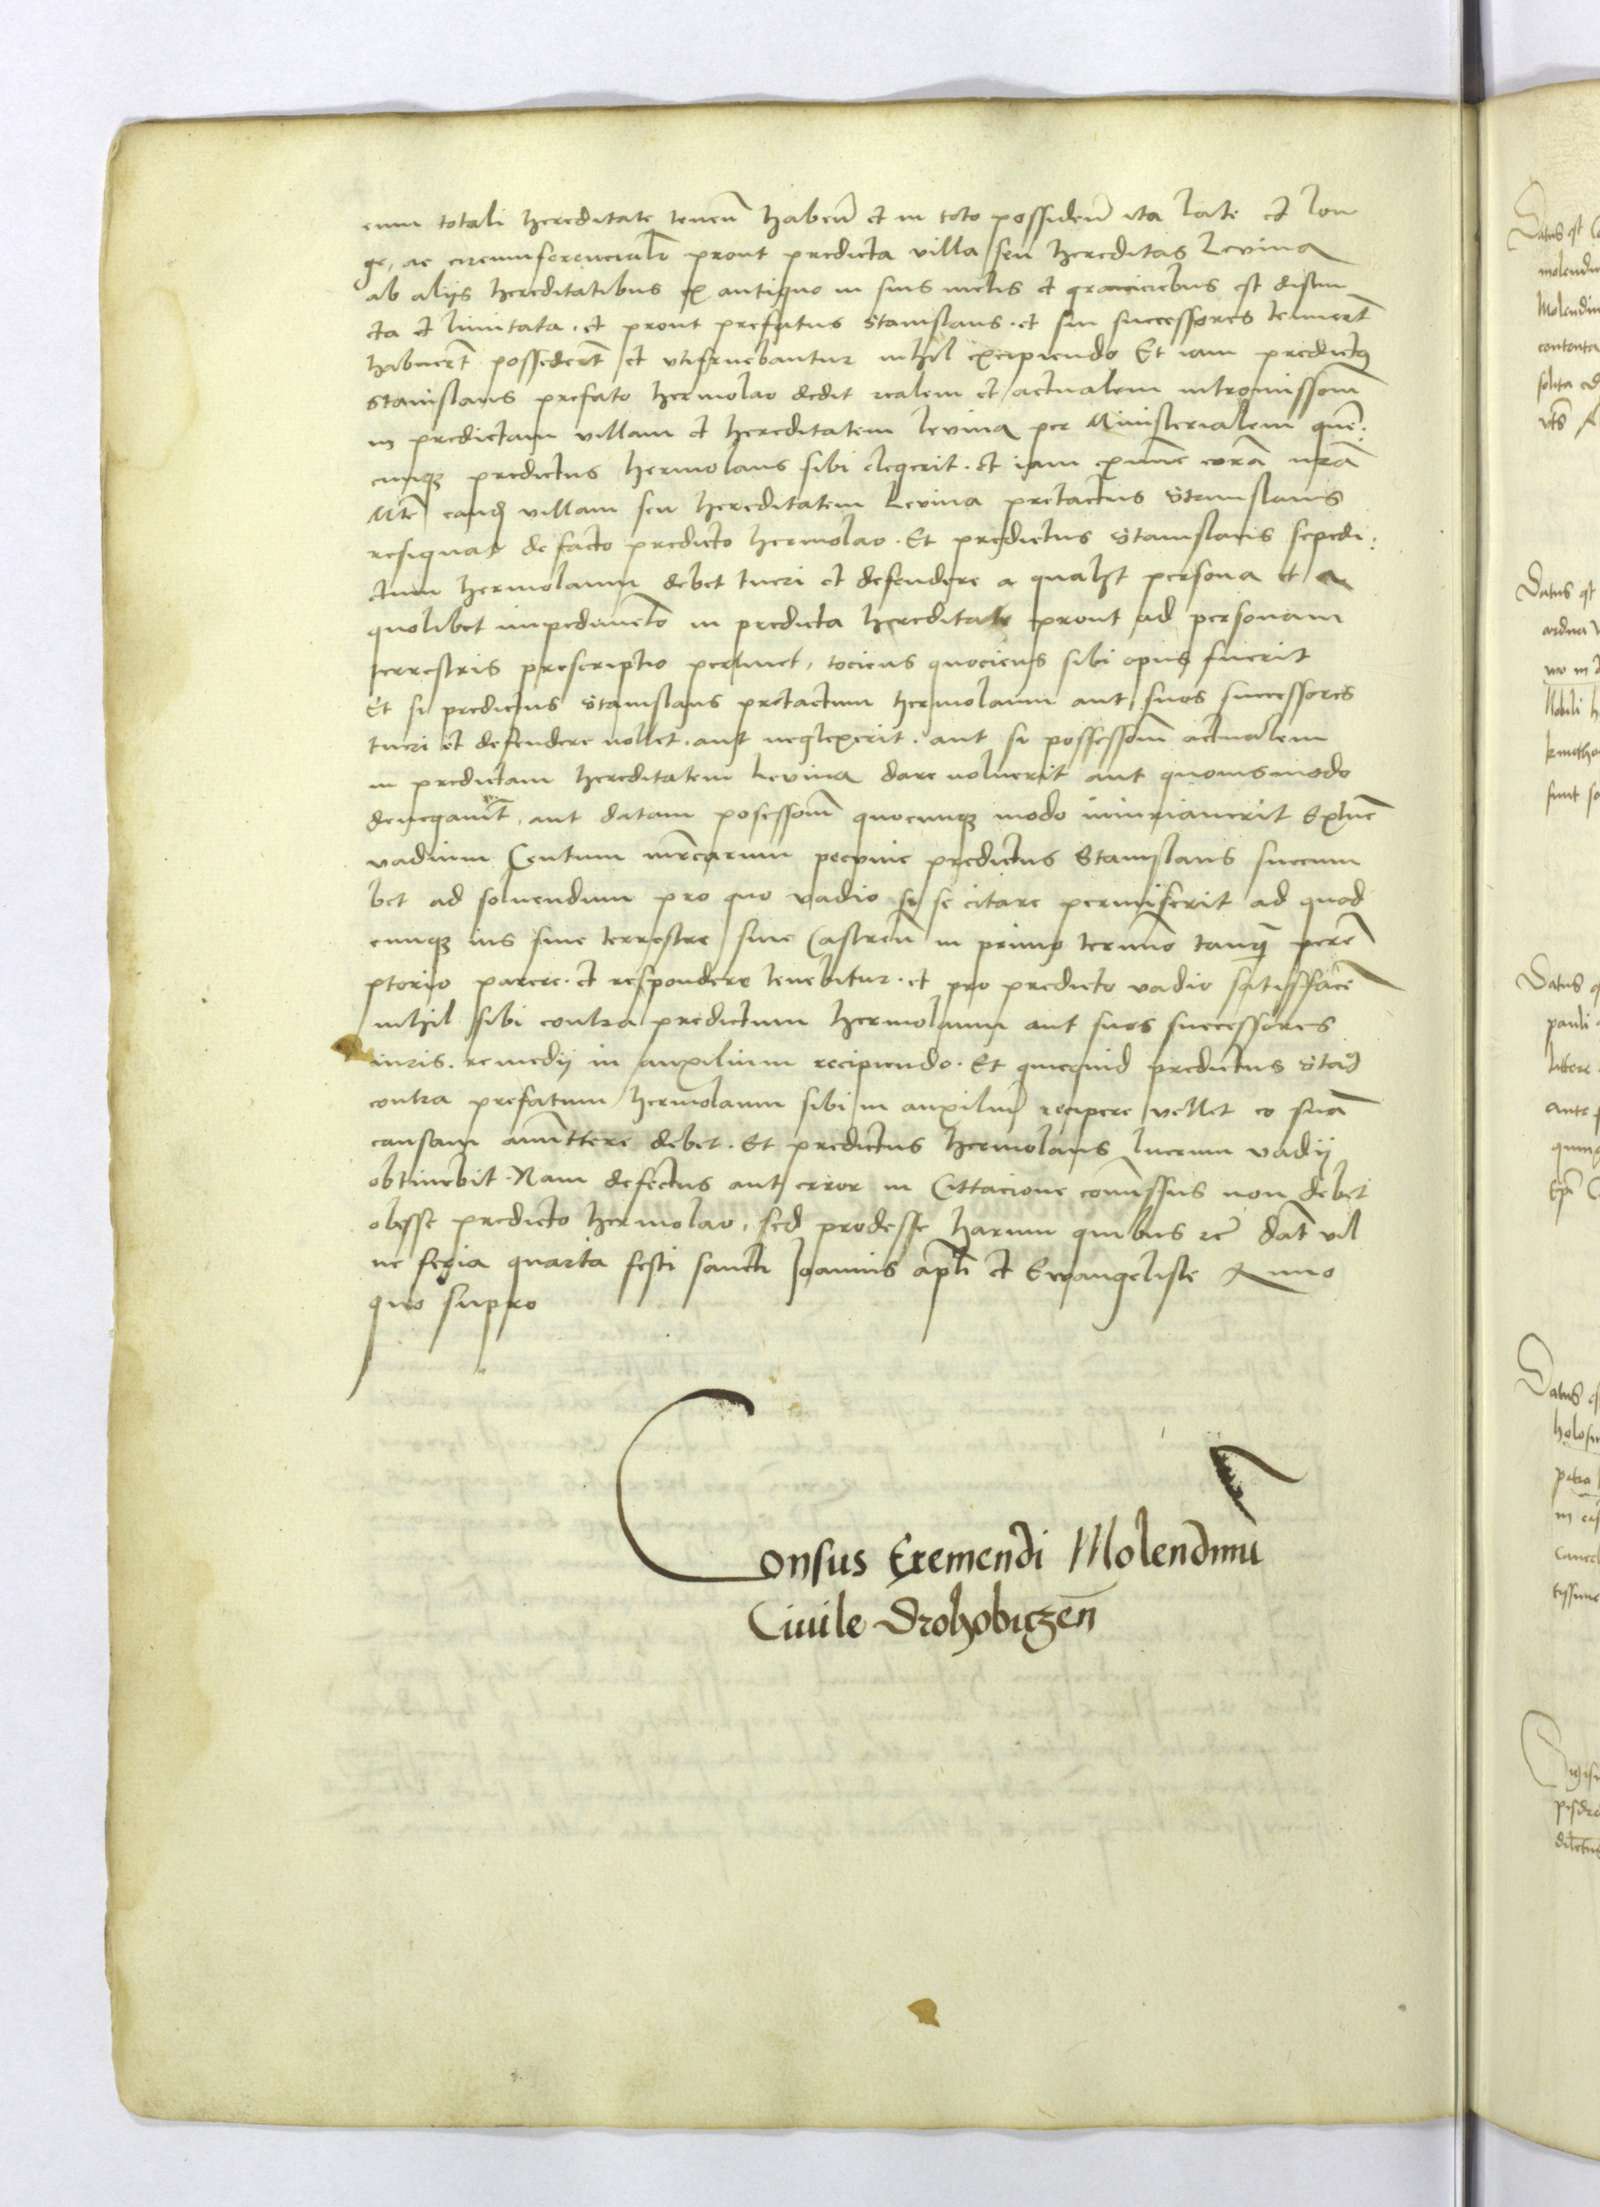 cum totali hereditate tenen̄ haben̄ et in toto possiden̄ ita late et lon
ge, ac circumferencialr̄ prout predicta villa seu hereditas Levina
ab alijs hereditatibus ex antiquo in suis metis et graniciebus est distin
cta et limitata. et prout prefatus Stanislaus. et sui successores tenuert̄
habuert̄ possedert̄ et vtifruebantur nihil excipiendo Et iam predictꝯ
Stanislaus prefato hermolao dedit realem et actualem intromissom̄
in predictam villam et hereditatem levina per Ministerialem quem̄:
cunqꝫ predictus hermolaus sibi elegerit. et iam exnunc corā nrā
Mte eand villam seu hereditatem Levina pretactus Stanislaus
resignat de facto predicto hermolao. Et predictus Stanislaus sepedi:
ctum hermolaum debet tueri et defendere a qualꝫt persona et a
quolibet impedimēto in predicta hereditate prout ad personam
terrestris prescriptio pertinet, tociens quociens sibi opus fuerit
Et si predictus Stanislaus pretactum hermolaum aut suos successores
tueri et defendere nollet. aut neglexerit. aut si possessom̄ actualem
in predictam hereditatem Levina dare noluerit aut quouismodo
denegauit̄, aut datam posessom̄ quocunqꝫ modo iniuriauerit Extunc̄
vadium Centum mrcarum pecunie predictus Stanislaus succum
bet ad soluendum pro quo vadio si se citare permiserit ad quod
cunqꝫ ius siue terrestre siue Castren̄ in primo termino tanq̄ perem̄
ptorio parere. et respondere tenebitur. et pro predicto vadio satisfacē
nihil sibi contra predictum hermolaum aut suos successores
iuris. remedij in auxilium recipiendo. Et quicquid predictus Sta
contra prefatum hermolaum sibi in auxiliū recipere vellet eo suā
causam amittere debet. Et predictus hermolaus lucrum vadij
obtinebit. Nam defectus aut error in Cittacione comissus non debet
obesse predicto hermolao, sed prodesse harum quibus rē dat̄ vil
ne feria quarta festi sancti Joannis apli et Ewangeliste Anno
quo supro
Consus Exemendi Molendinū
Ciuile Drohobiczen̄